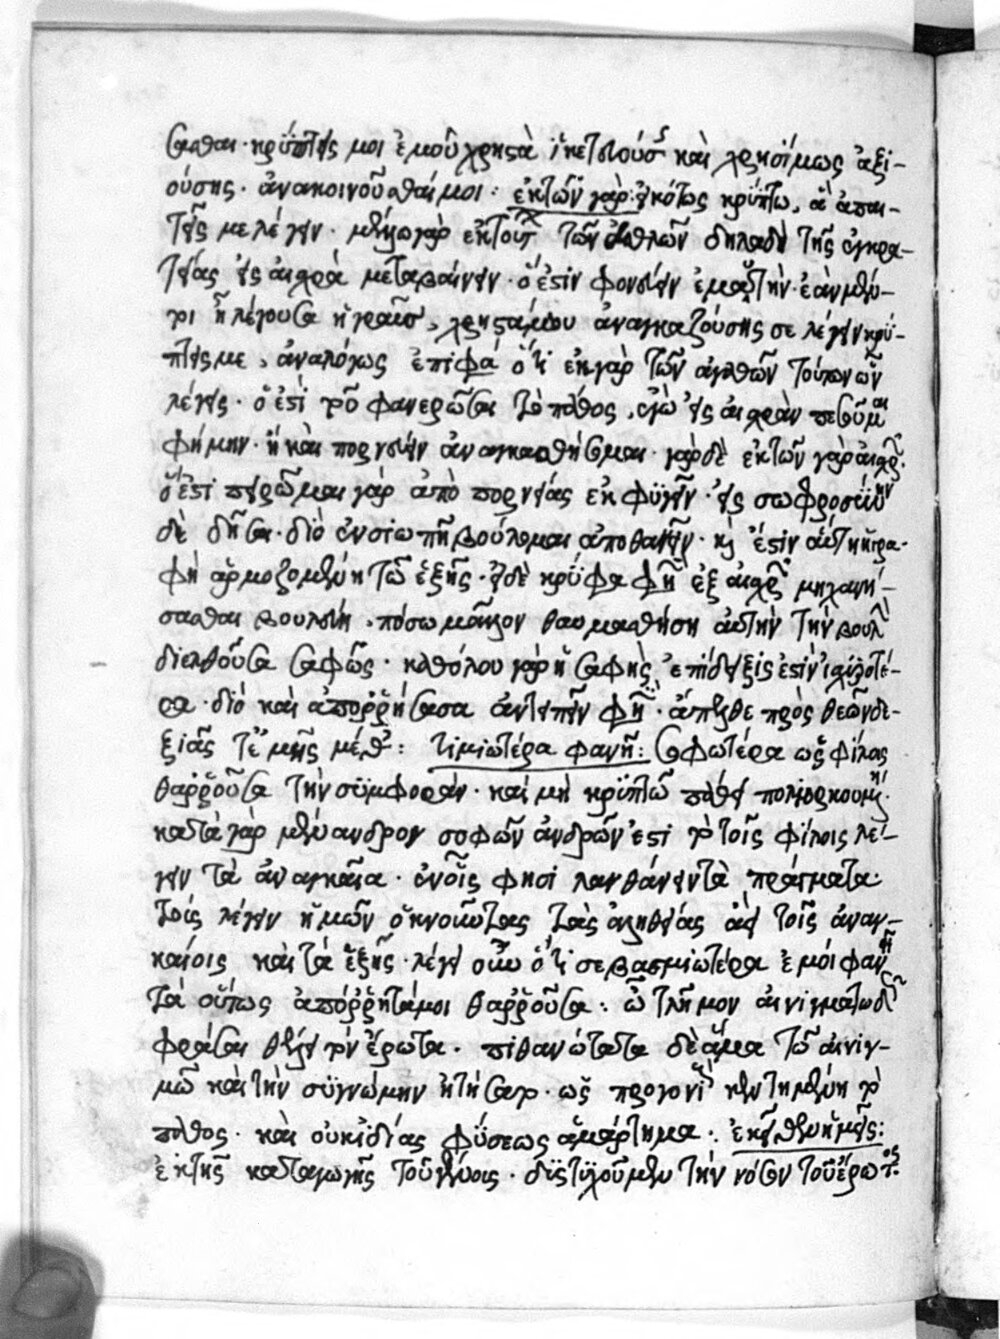 σασθαι· κρύπτεις μοι ἐμοῦ χρηστὰ ἱκετευούσης καὶ χρησίμως ἀξι-
ούσης· ἀνακοινοῦσθαί μοι: ἐκ τῶν γὰρ: εἰκότως κρύπτω, ἃ ἀπαι-
τεῖς με λέγειν· μέλλω γὰρ ἐκ τούτων τῶν ἐσθλῶν δηλαδὴ τῆς ἐγκρα-
τείας εἰς αἰσχρὰ μεταβαίνειν· ὅ ἐστιν φονεύειν ἐμαυτήν· ἐὰν μέν-
τοι ἦ λέγουσα ἡ γραῦς, χρηστά μου ἀναγκαζούσης σε λέγειν κρύ-
πτεις με, ἀναλόγως ἐπιφέρει ὅτι ἐκ γὰρ τῶν ἀγαθῶν τούτων ὧν
λέγεις· ὅ ἐστι τοῦ φανερῶσαι τὸ πάθος, ἐγὼ εἰς αἰσχρὰν πεσοῦμαι
φήμην· ἢ καὶ πορνεύειν ἀναγκασθήσομαι· γράφεται δὲ ἐκ τῶν γὰρ αἰσχρῶν·
ὅ ἐστι πειρῶμαι γὰρ ἀπὸ πορνείας ἐκφυγεῖν· εἰς σωφροσύνην
δὲ δῦσαι· διὸ ἐν σιωπῇ βούλομαι ἀποθανεῖν· καὶ ἔστιν αὕτη ἡ γρα-
φὴ ἁρμοζομένη τῷ ἑξῆς· εἰ δὲ κρύφα φησὶ ἐξ αἰσχρῶν μηχανή-
σασθαι βουλεύῃ, πόσῳ μᾶλλον θαυμασθήσῃ αὐτὴν τὴν βουλὴν
διελθοῦσα σαφῶς· καθόλου γὰρ ἡ σαφὴς ἐπίδειξίς ἐστιν
ρα· διὸ καὶ ἀπορρήσασα ἀντειπεῖν φησιν· ἄπελθε πρὸς θεῶν δε-
ξιᾶς τ' ἐμῆς μέθες: τιμιωτέρα φανῇ: σοφωτέρα ὡς φίλας
θαρροῦσα τὴν συμφοράν· καὶ μὴ κρύπτω πάθει πολιορκουμένη·
κατὰ γὰρ μένανδρον σοφῶν ἀνδρῶν ἐστὶ τὸ τοῖς φίλοις λέ-
γειν τὰ ἀναγκαῖα· ἐν οἷς φησὶ λανθάνειν τὰ πράγματα
τοῖς λέγειν ἡμῶν ὀκνοῦντας τὰς ἀληθείας ἀεὶ τοῖς ἀναγ-
καίοις καὶ τὰ ἑξῆς· λέγει οὖν ὅτι σεβασμιωτέρα ἐμοὶ φανῇ
τὰ οὕτως ἀπόρρητά μοι θαρροῦσα: ὦ τλῆμον αἰνιγματωδῶς
φράσαι θέλει τὸν ἔρωτα· πιθανώτατα δὲ ἅμα τῷ αἰνιγ-
μῷ καὶ τὴν συγνώμην ᾐτήσατο· ὡς προγονικὸν κεκτημένη τὸ
πάθος· καὶ οὐκ ἰδίας φύσεως ἁμάρτημα: ἐκεῖθεν ἡμεῖς:
ἐκ τῆς καταγωγῆς τοῦ γένους· δυστυχοῦμεν τὴν νόσον τοῦ ἔρωτος